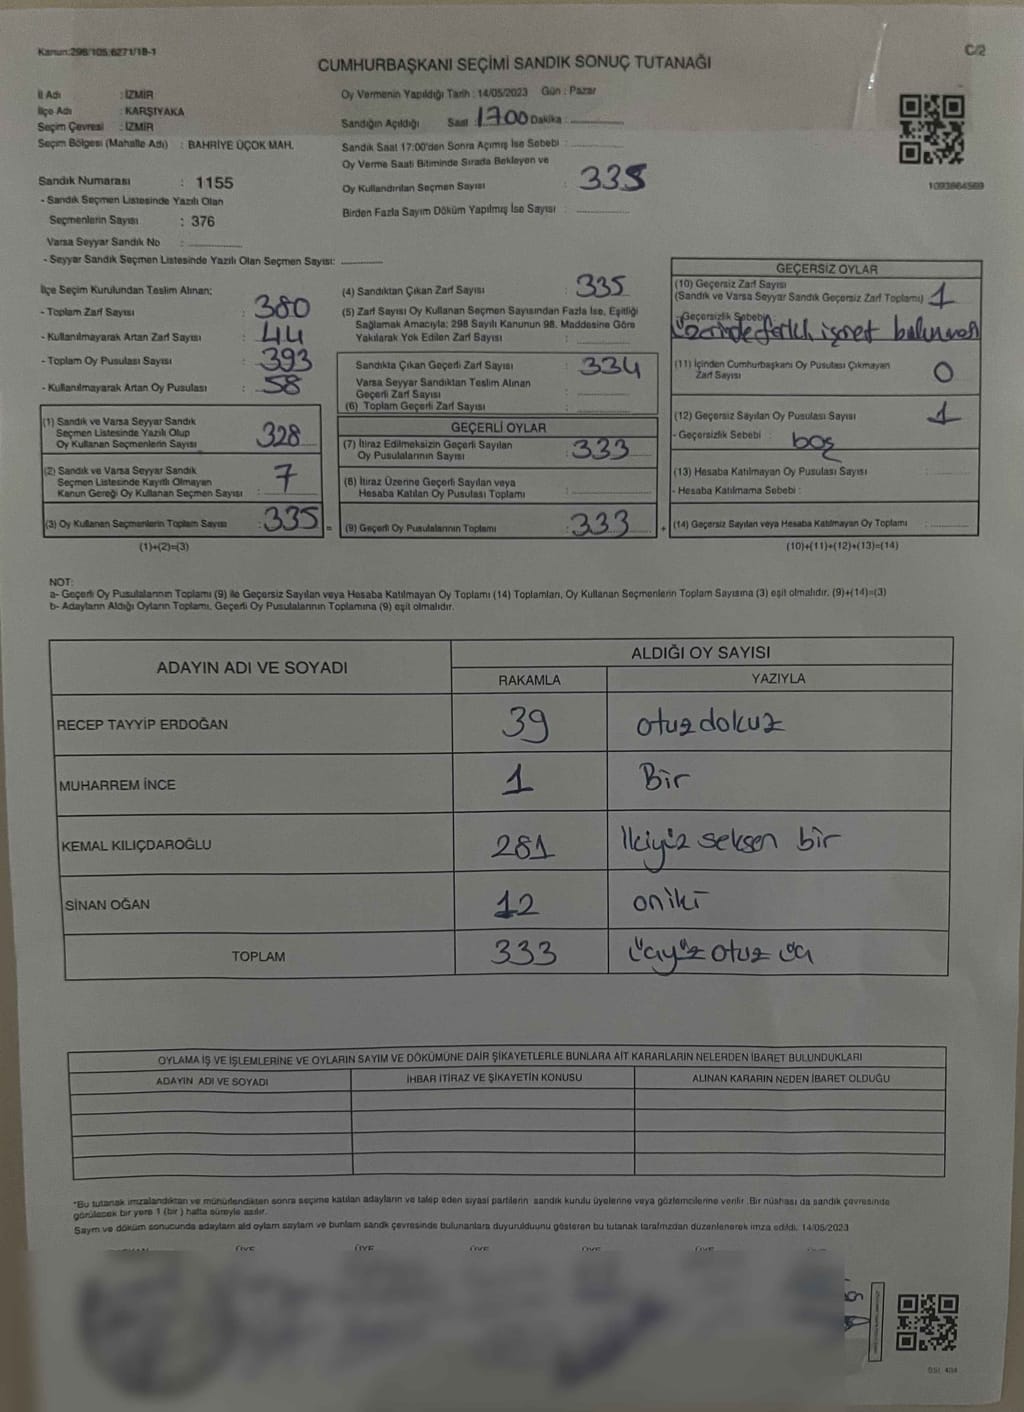 Kanun:298/105;6271/18-1
C/2
CUMHURBAŞKANI SEÇİMİ SANDIK SONUÇ TUTANAĞI
İl Adı : İZMİR
İlçe Adı : KARŞIYAKA
Seçim Çevresi : İZMİR
Seçim Bölgesi (Mahalle Adı) : BAHRİYE ÜÇOK MAH.
Oy Vermenin Yapıldığı Tarih : 14/05/2023 Gün : Pazar
Sandığın Açıldığı Saat : 1700 Dakika : ............
Sandık Saat 17:00'den Sonra Açımış İse Sebebi : ............
Oy Verme Saati Bitiminde Sırada Bekleyen ve
Oy Kullandırılan Seçmen Sayısı : 335
Birden Fazla Sayım Döküm Yapılmış İse Sayısı : ............
1093864569
Sandık Numarası : 1155
- Sandık Seçmen Listesinde Yazılı Olan
Seçmenlerin Sayısı : 376
Varsa Seyyar Sandık No : ............
- Seyyar Sandık Seçmen Listesinde Yazılı Olan Seçmen Sayısı: ............
İlçe Seçim Kurulundan Teslim Alınan;
- Toplam Zarf Sayısı : 380
- Kullanılmayarak Artan Zarf Sayısı : 44
- Toplam Oy Pusulası Sayısı : 393
- Kullanılmayarak Artan Oy Pusulası : 58
(1) Sandık ve Varsa Seyyar Sandık
Seçmen Listesinde Yazılı Olup
Oy Kullanan Seçmenlerin Sayısı : 328
(2) Sandık ve Varsa Seyyar Sandık
Seçmen Listesinde Kayıtlı Olmayan
Kanun Gereği Oy Kullanan Seçmen Sayısı : 7
(3) Oy Kullanan Seçmenlerin Toplam Sayısı : 335 =
(1)+(2)=(3)
(4) Sandıktan Çıkan Zarf Sayısı : 335
(5) Zarf Sayısı Oy Kullanan Seçmen Sayısından Fazla İse, Eşitliği
Sağlamak Amacıyla; 298 Sayılı Kanunun 98. Maddesine Göre
Yakılarak Yok Edilen Zarf Sayısı : ............
Sandıkta Çıkan Geçerli Zarf Sayısı : 334
Varsa Seyyar Sandıktan Teslim Alınan
Geçerli Zarf Sayısı : ............
(6) Toplam Geçerli Zarf Sayısı : ............
GEÇERLİ OYLAR
(7) İtiraz Edilmeksizin Geçerli Sayılan
Oy Pusulalarının Sayısı : 333
(8) İtiraz Üzerine Geçerli Sayılan veya
Hesaba Katılan Oy Pusulası Toplamı : ............
(9) Geçerli Oy Pusulalarının Toplamı : 333 +
GEÇERSİZ OYLAR
(10) Geçersiz Zarf Sayısı
(Sandık ve Varsa Seyyar Sandık Geçersiz Zarf Toplamı) 1
- Geçersizlik Sebebi :
Üzerinde farklı işaret bulunması
(11) İçinden Cumhurbaşkanı Oy Pusulası Çıkmayan
Zarf Sayısı 0
(12) Geçersiz Sayılan Oy Pusulası Sayısı 1
- Geçersizlik Sebebi : boş
(13) Hesaba Katılmayan Oy Pusulası Sayısı : ............
- Hesaba Katılmama Sebebi :
(14) Geçersiz Sayılan veya Hesaba Katılmayan Oy Toplamı : ............
(10)+(11)+(12)+(13)=(14)
NOT:
a- Geçerli Oy Pusulalarının Toplamı (9) ile Geçersiz Sayılan veya Hesaba Katılmayan Oy Toplamı (14) Toplamları, Oy Kullanan Seçmenlerin Toplam Sayısına (3) eşit olmalıdır. (9)+(14)=(3)
b- Adayların Aldığı Oyların Toplamı, Geçerli Oy Pusulalarının Toplamına (9) eşit olmalıdır.
ADAYIN ADI VE SOYADI
ALDIĞI OY SAYISI
RAKAMLA YAZIYLA
RECEP TAYYİP ERDOĞAN 39 otuzdokuz
MUHARREM İNCE 1 Bir
KEMAL KILIÇDAROĞLU 281 İkiyüz seksen bir
SİNAN OĞAN 12 oniki
TOPLAM 333 üçyüz otuz üç
OYLAMA İŞ VE İŞLEMLERİNE VE OYLARIN SAYIM VE DÖKÜMÜNE DAİR ŞİKAYETLERLE BUNLARA AİT KARARLARIN NELERDEN İBARET BULUNDUKLARI
ADAYIN ADI VE SOYADI İHBAR İTİRAZ VE ŞİKAYETİN KONUSU ALINAN KARARIN NEDEN İBARET OLDUĞU
*Bu tutanak imzalandıktan ve mühürlendikten sonra seçime katılan adayların ve talep eden siyasi partilerin sandık kurulu üyelerine veya gözlemcilerine verilir. Bir nüshası da sandık çevresinde
görülecek bir yere 1 (bir ) hafta süreyle asılır.
Sayım ve döküm sonucunda adayların ald oyların sayları ve bunların sandk çevresinde bulunanlara duyurulduunu gösteren bu tutanak tarafmzdan düzenlenerek imza edildi. 14/05/2023
ÜYE ÜYE ÜYE ÜYE ÜYE ÜYE